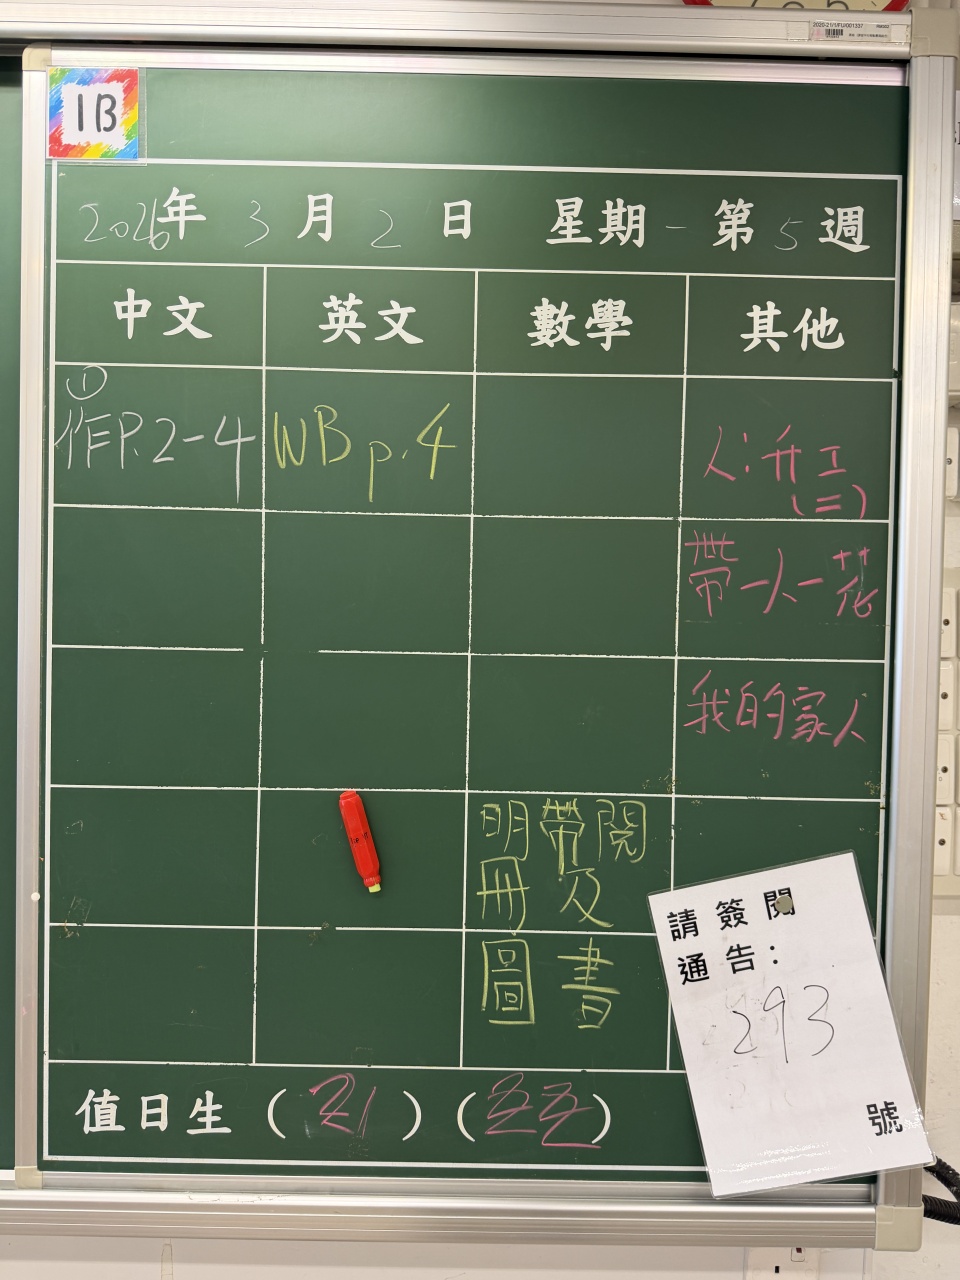 2020-21/1/FU/001337
1B
2026年 3月2日 星期一 第5週
中文 英文 數學 其他
①
作P.2-4 WB p.4 人:升工
(二)
帶一人一花
我的家人
明帶閱
冊及
圖書
請簽閱
通告:
293
號
值日生 ( 21 ) ( )